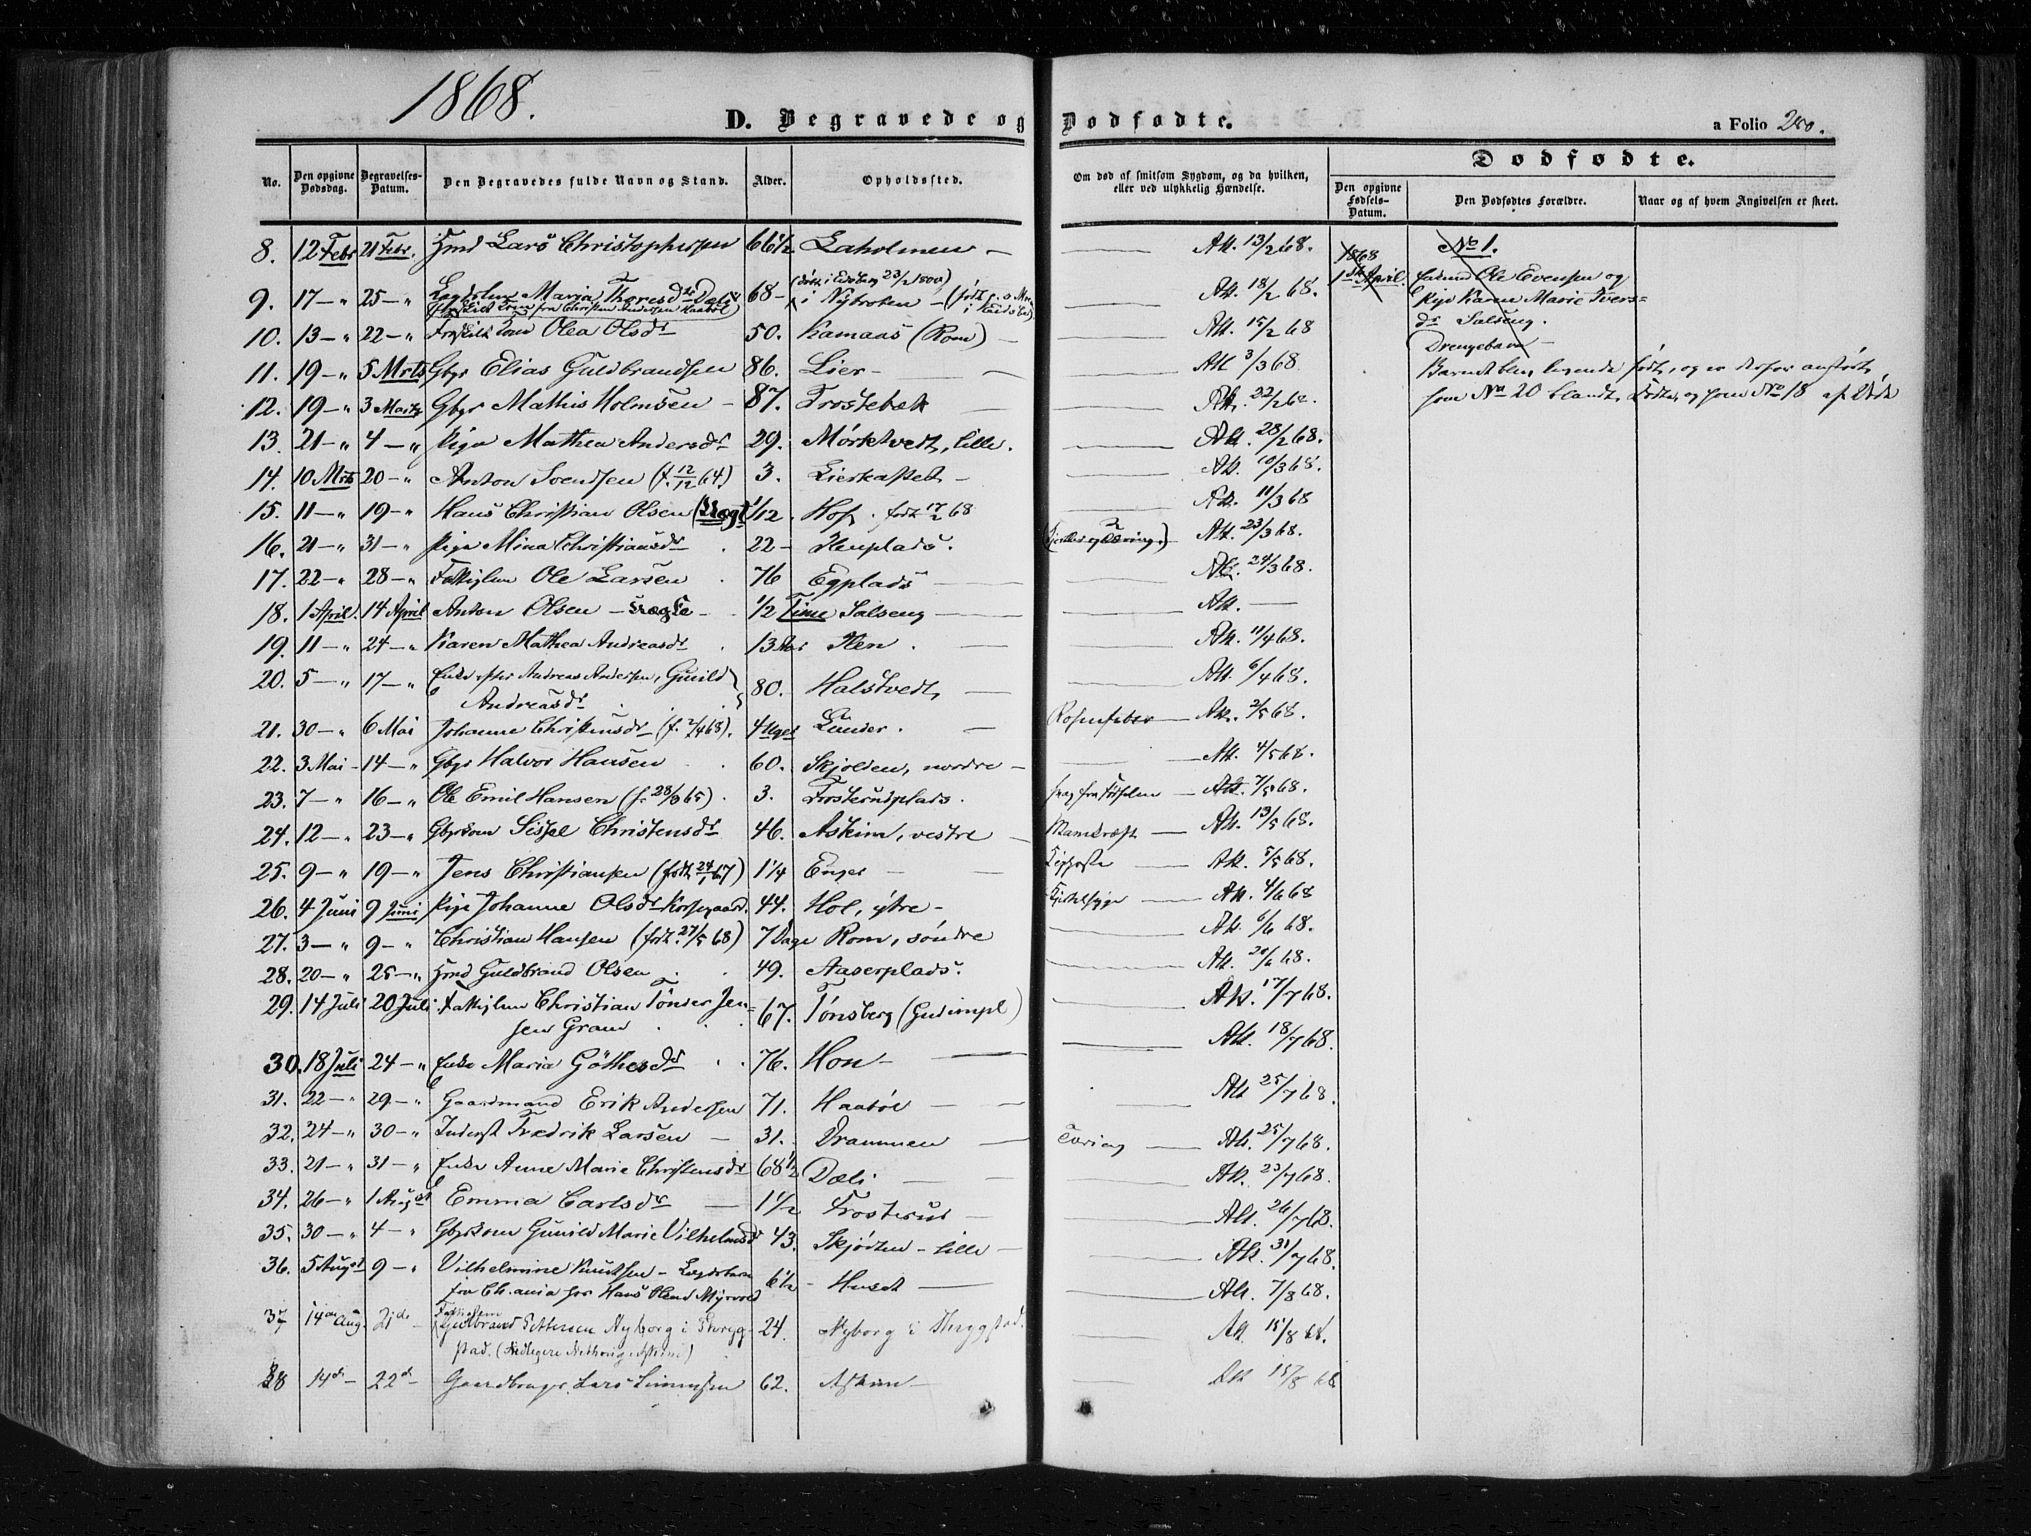 1868.
D. Begravede og Dødfødte.
a Folio 280.
Dødfødte.
No. Den opgivne Dødsdag. Begravelses-Datum. Den Begravedes fulde Navn og Stand. Alder. Opholdssted. Om død af smitsom Sygdom, og da hvilken, eller ved ulykkelig Hændelse. Den opgivne Fødsels-Datum. Den Dødfødtes Forældre. Naar og af hvem Angivelsen er skeet.
8. 12 Febr 21 Febr. Lars Christophersen 66 1/2 Laholmen — 13/2 68.
9. 17 — " 25 — " Maria Thoresdr 68 — i Nybroten — 18/2 68.
10. 13 — " 22 — " Olea Olsdr 50. Kamaas (Rom) — 15/2 68
11. 19 — " 5 Mrts Gbgr Elias Guldbrandsen 86. Lier — 3/3 68.
12. 19 — " 3 Marts Gbgr Mathis Holmsen — 87. Trostebæk — 22/2 68.
13. 21 — " 4 — " Pige Mathea Andersdr 29. Mørktvedt, lille. 28/2 68.
14. 10 Mrts 20 — " Anton Svendsen (f. 12/12 64) 3. Lierkastet — 10/3 68.
15. 11 — " 19 — " Hans Christian Olsen (Uægt 1/12 Hof. født 17/2 68 11/3 68
16. 21 — " 31 — " Pige Mina Christiansdr 22 — Henplads. 23/3 68.
17. 22 — " 28 — " Ole Larsen 76 Egplads — 24/3 68.
18. 1 April. 14 April Anton Olsen — Uægte — 1/2 Time Salseng —
19. 11 — " 24 — " Karen Mathea Andreasdr 13 Aar Hen. 11/4 68.
20. 5 — " 17 — " Enke efter Andreas Andersen, Gunild
Andreasdr 80. Halstvedt, — 6/4 68.
21. 30 — " 6 Mai Johanne Christensdr (f. 2/4 68). 4 Uger Lunder. Rosenfeber — 2/5 68.
22. 3 Mai — 14 — " Gbgr Halvor Hansen 60. Skjolden, nordre — 4/5 68.
23. 7 — " 16 — " Ole Emil Hansen (f. 28/9 65). 3. Trosterudplads. svag fra Fødselen — 7/5 68.
24. 12 — " 23 — " Gbrkone Sissel Christensdr 46. Askim, vestre — 13/5 68.
25. 9 — " 19 — " Jens Christiansen (født 24/1 67) 1 1/4 Enger — 5/5 68.
26. 4 Juni 9 Juni Pige Johanne Olsdr Korsegaard. 44. Hol, ytre — 4/6 68
27. 3 — " 9 — " Christian Hansen (født 27/5 68) 7 Dage Rom, søndre 6/6 68.
28. 20 — " 25 — " Guldbrand Olsen 49. Aaserplads. 20/6 68.
29. 14 Juli 20 Juli Christian Tønder Jen-
sen Gram 67. Tønsberg (Gudimpl) 17/7 68.
30. 18 Juli 24 — " Enke Maria Göthesdr 76. Hon — 18/7 68.
31. 22 — " 29 — " Gaardmand Erik Andersen 71. Haabøl — 25/7 68.
32. 24 — " 30 — " Inderst Fredrik Larsen — 31. Drammen — Tæring — 25/7 68.
33. 21 — " 31 — " Enke Anne Marie Christensdr 68 1/2 Dæli — 23/7 68.
34. 26 — " 1 August Emma Carlsdr — 1 1/2 Trosterud — 26/7 68.
35. 30 — " 4 — " Gbgrkone Gunild Marie Vilhelmsd 43. Skjørten — lille — 31/7 68.
36. 5 August 9 — " Vilhelmine Knudsen — Lægdsbarn
fra Ch.ania hos Hans Olsen Myrvold 6 1/2 — Huset — 7/8 68.
37 14de Aug. 21de — Guldbrand Pettersen Nyborg i Thryg-
stad. 24. Nyborg i Thrygstad. 15/8 68.
38 14de — 22de — Gaardbruger Lars Simensen 62. Askim — 15/8 68
1868
1ste April.
No 1.
Ole Evensen og
Pige Karen Marie Ivers-
dr Salseng.
Drengebarn —
Barnet blev levende født, og er derfor anført
som No 20 blandt Fødte, og som No 18 af Døde